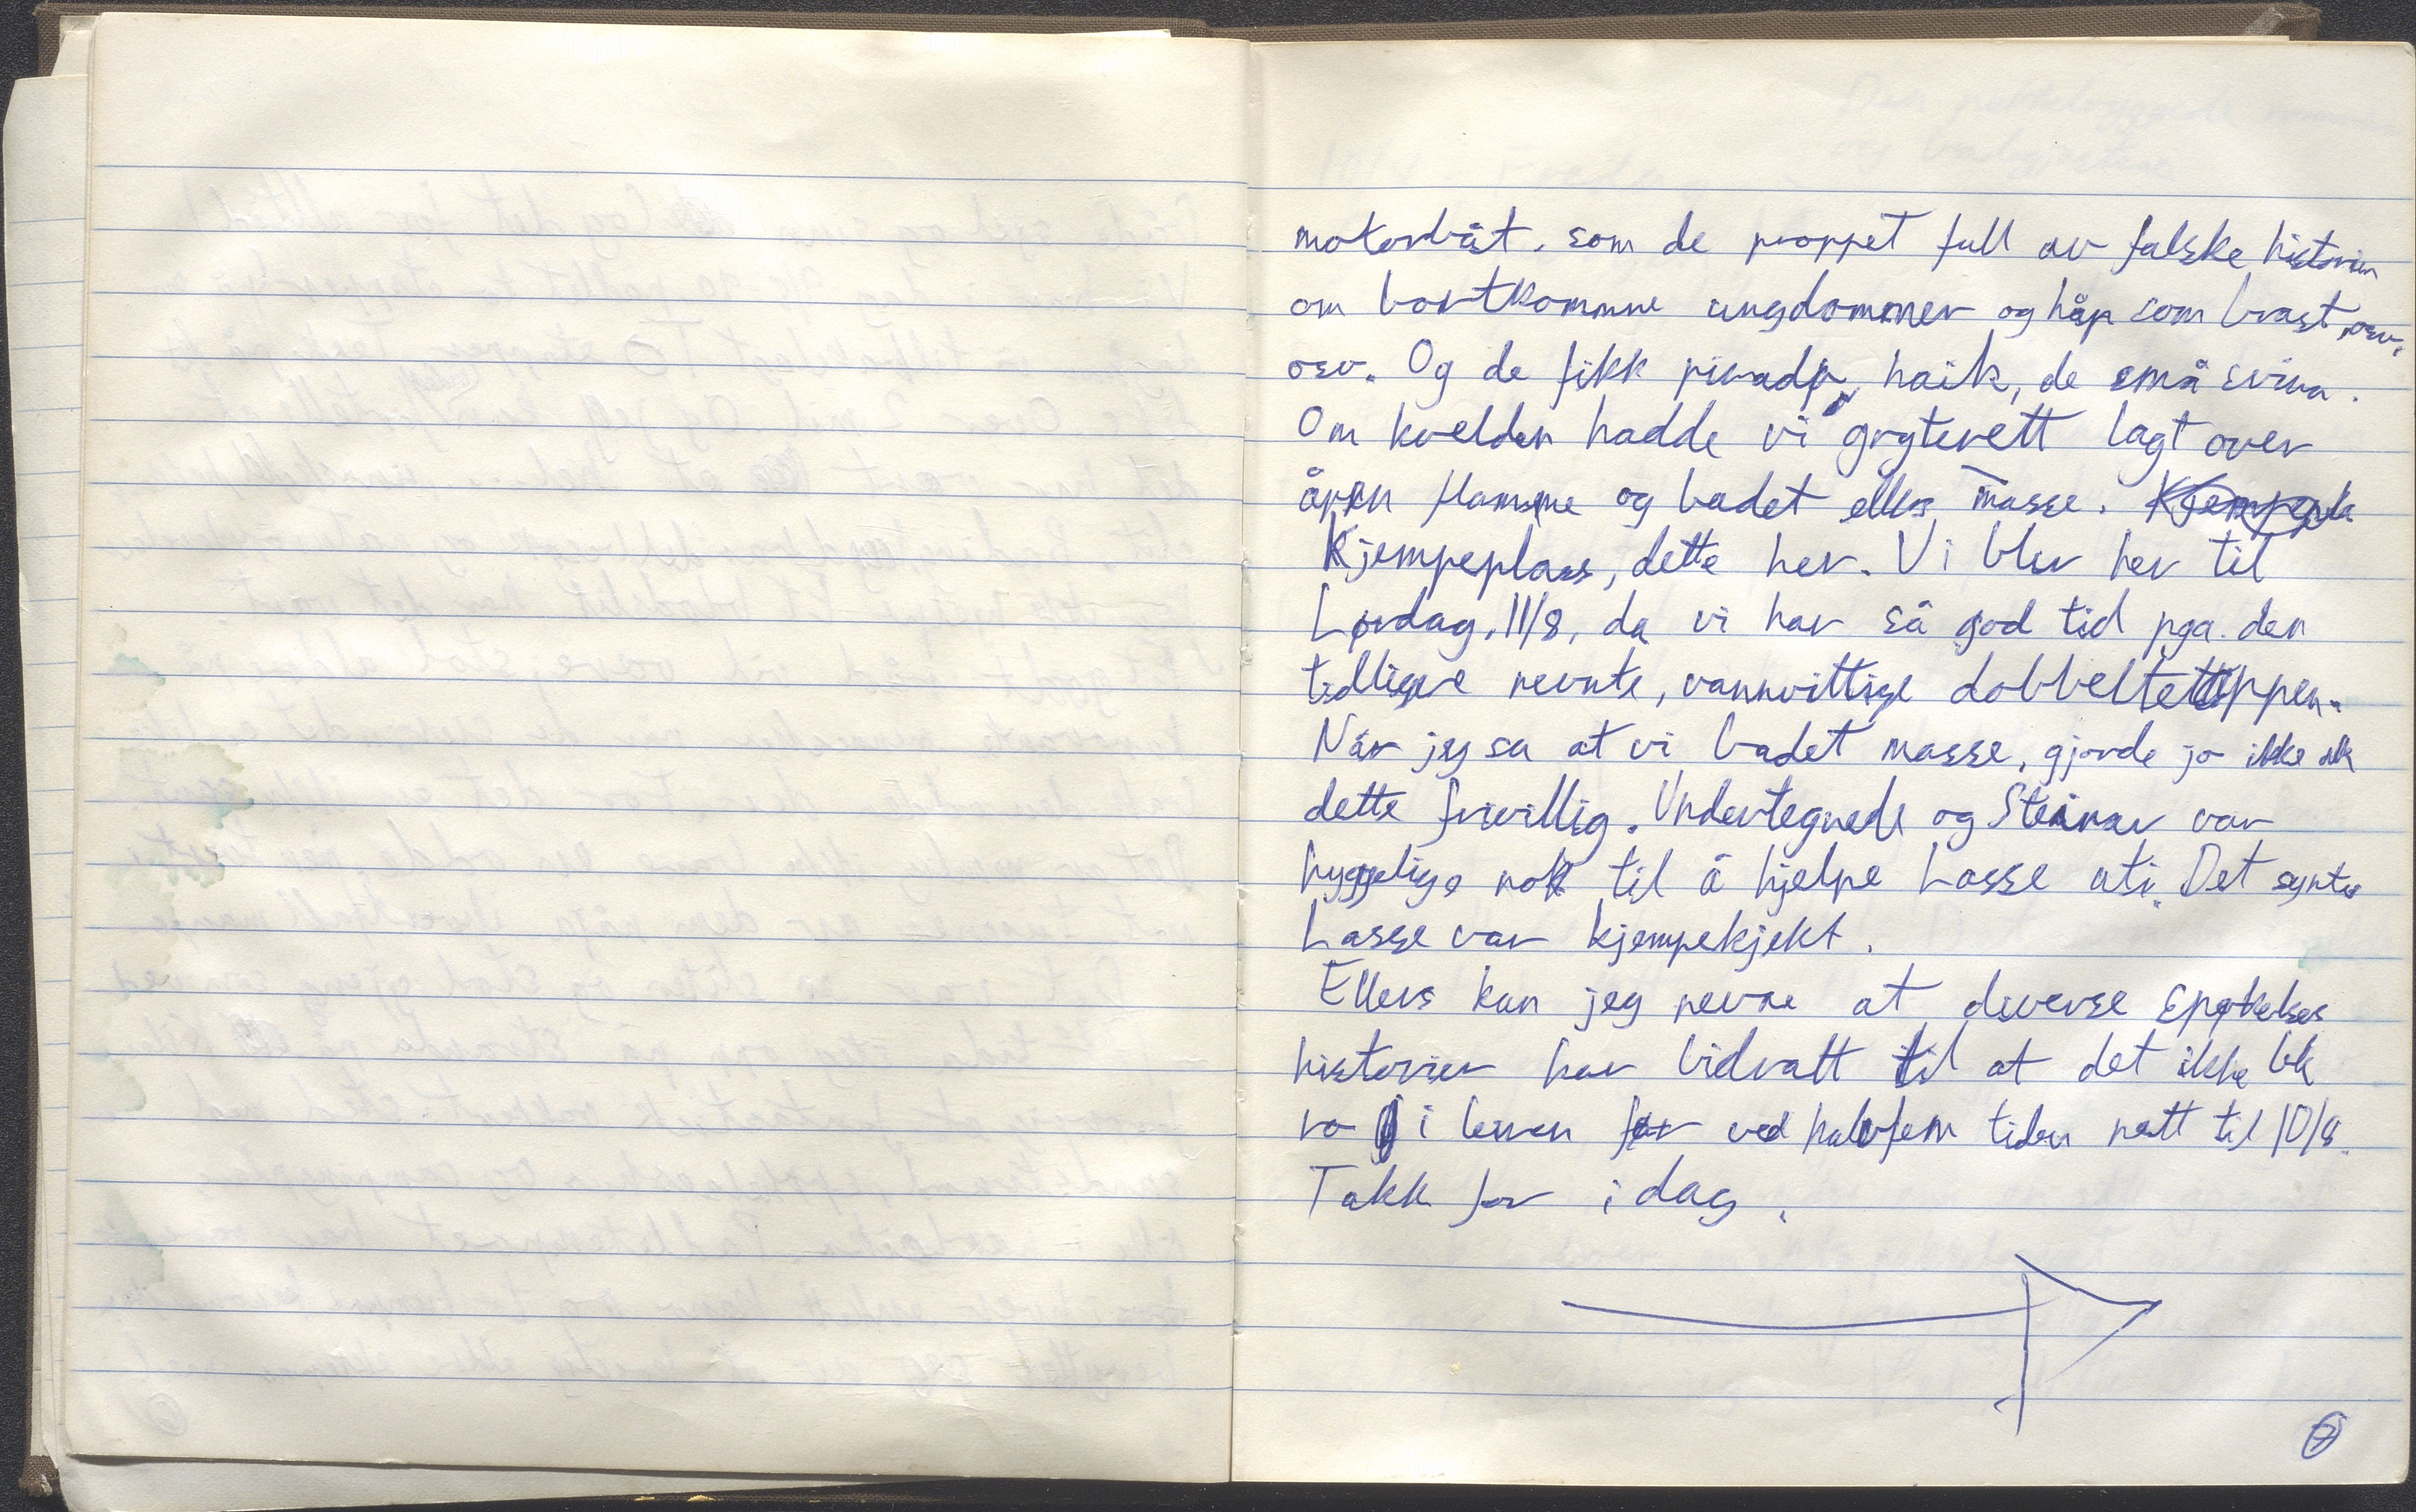 motorbåt. som de proppet full av falske historier
om bortkommne ungdommer og håp som brast, osv.
osv. Og de fikk haik, de små svina.
Om kvelden hadde vi gryterett lagt over
åpen flamme og badet ellers masse.
Kjempeplass, dette her. Vi blir her til
Lørdag, 11/8, da vi har så god tid pga. den
tidligere nevnte, vannvittige dobbeltetappen.
Når jeg sa at vi badet masse, gjorde jo ikke alle
dette frivillig. Undertegnede og Steinar var
hyggelige nok til å hjelpe Lasse uti. Det syntes
Lasse var kjempekjekt.
Ellers kan jeg nevne at diverse spøkelses
historier har bidratt til at det ikke ble
ro i leiren før ved halvfem tiden natt til 10/8.
Takk for i dag.
7